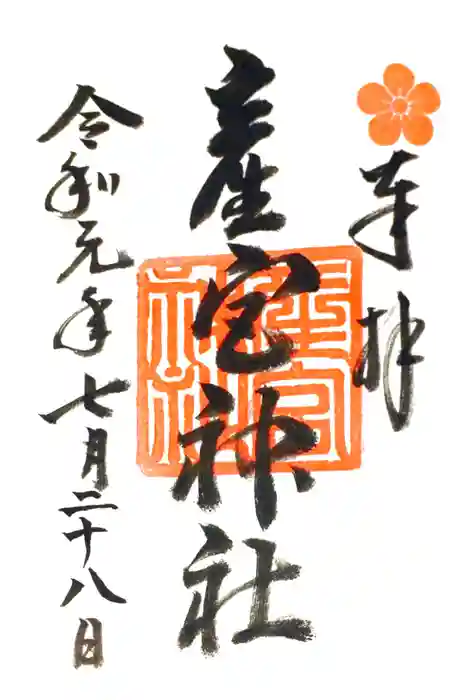 奉拝
産宮神社
令和元年七月二十八日